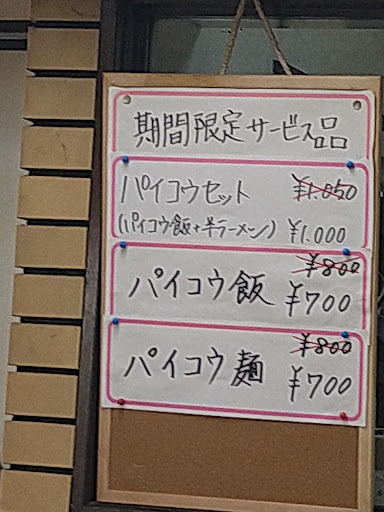 期間限定サービス品
パイコウセット ¥1.050
(パイコウ飯+半ラーメン) ¥1.000
¥800
パイコウ飯 ¥700
¥800
パイコウ麺 ¥700